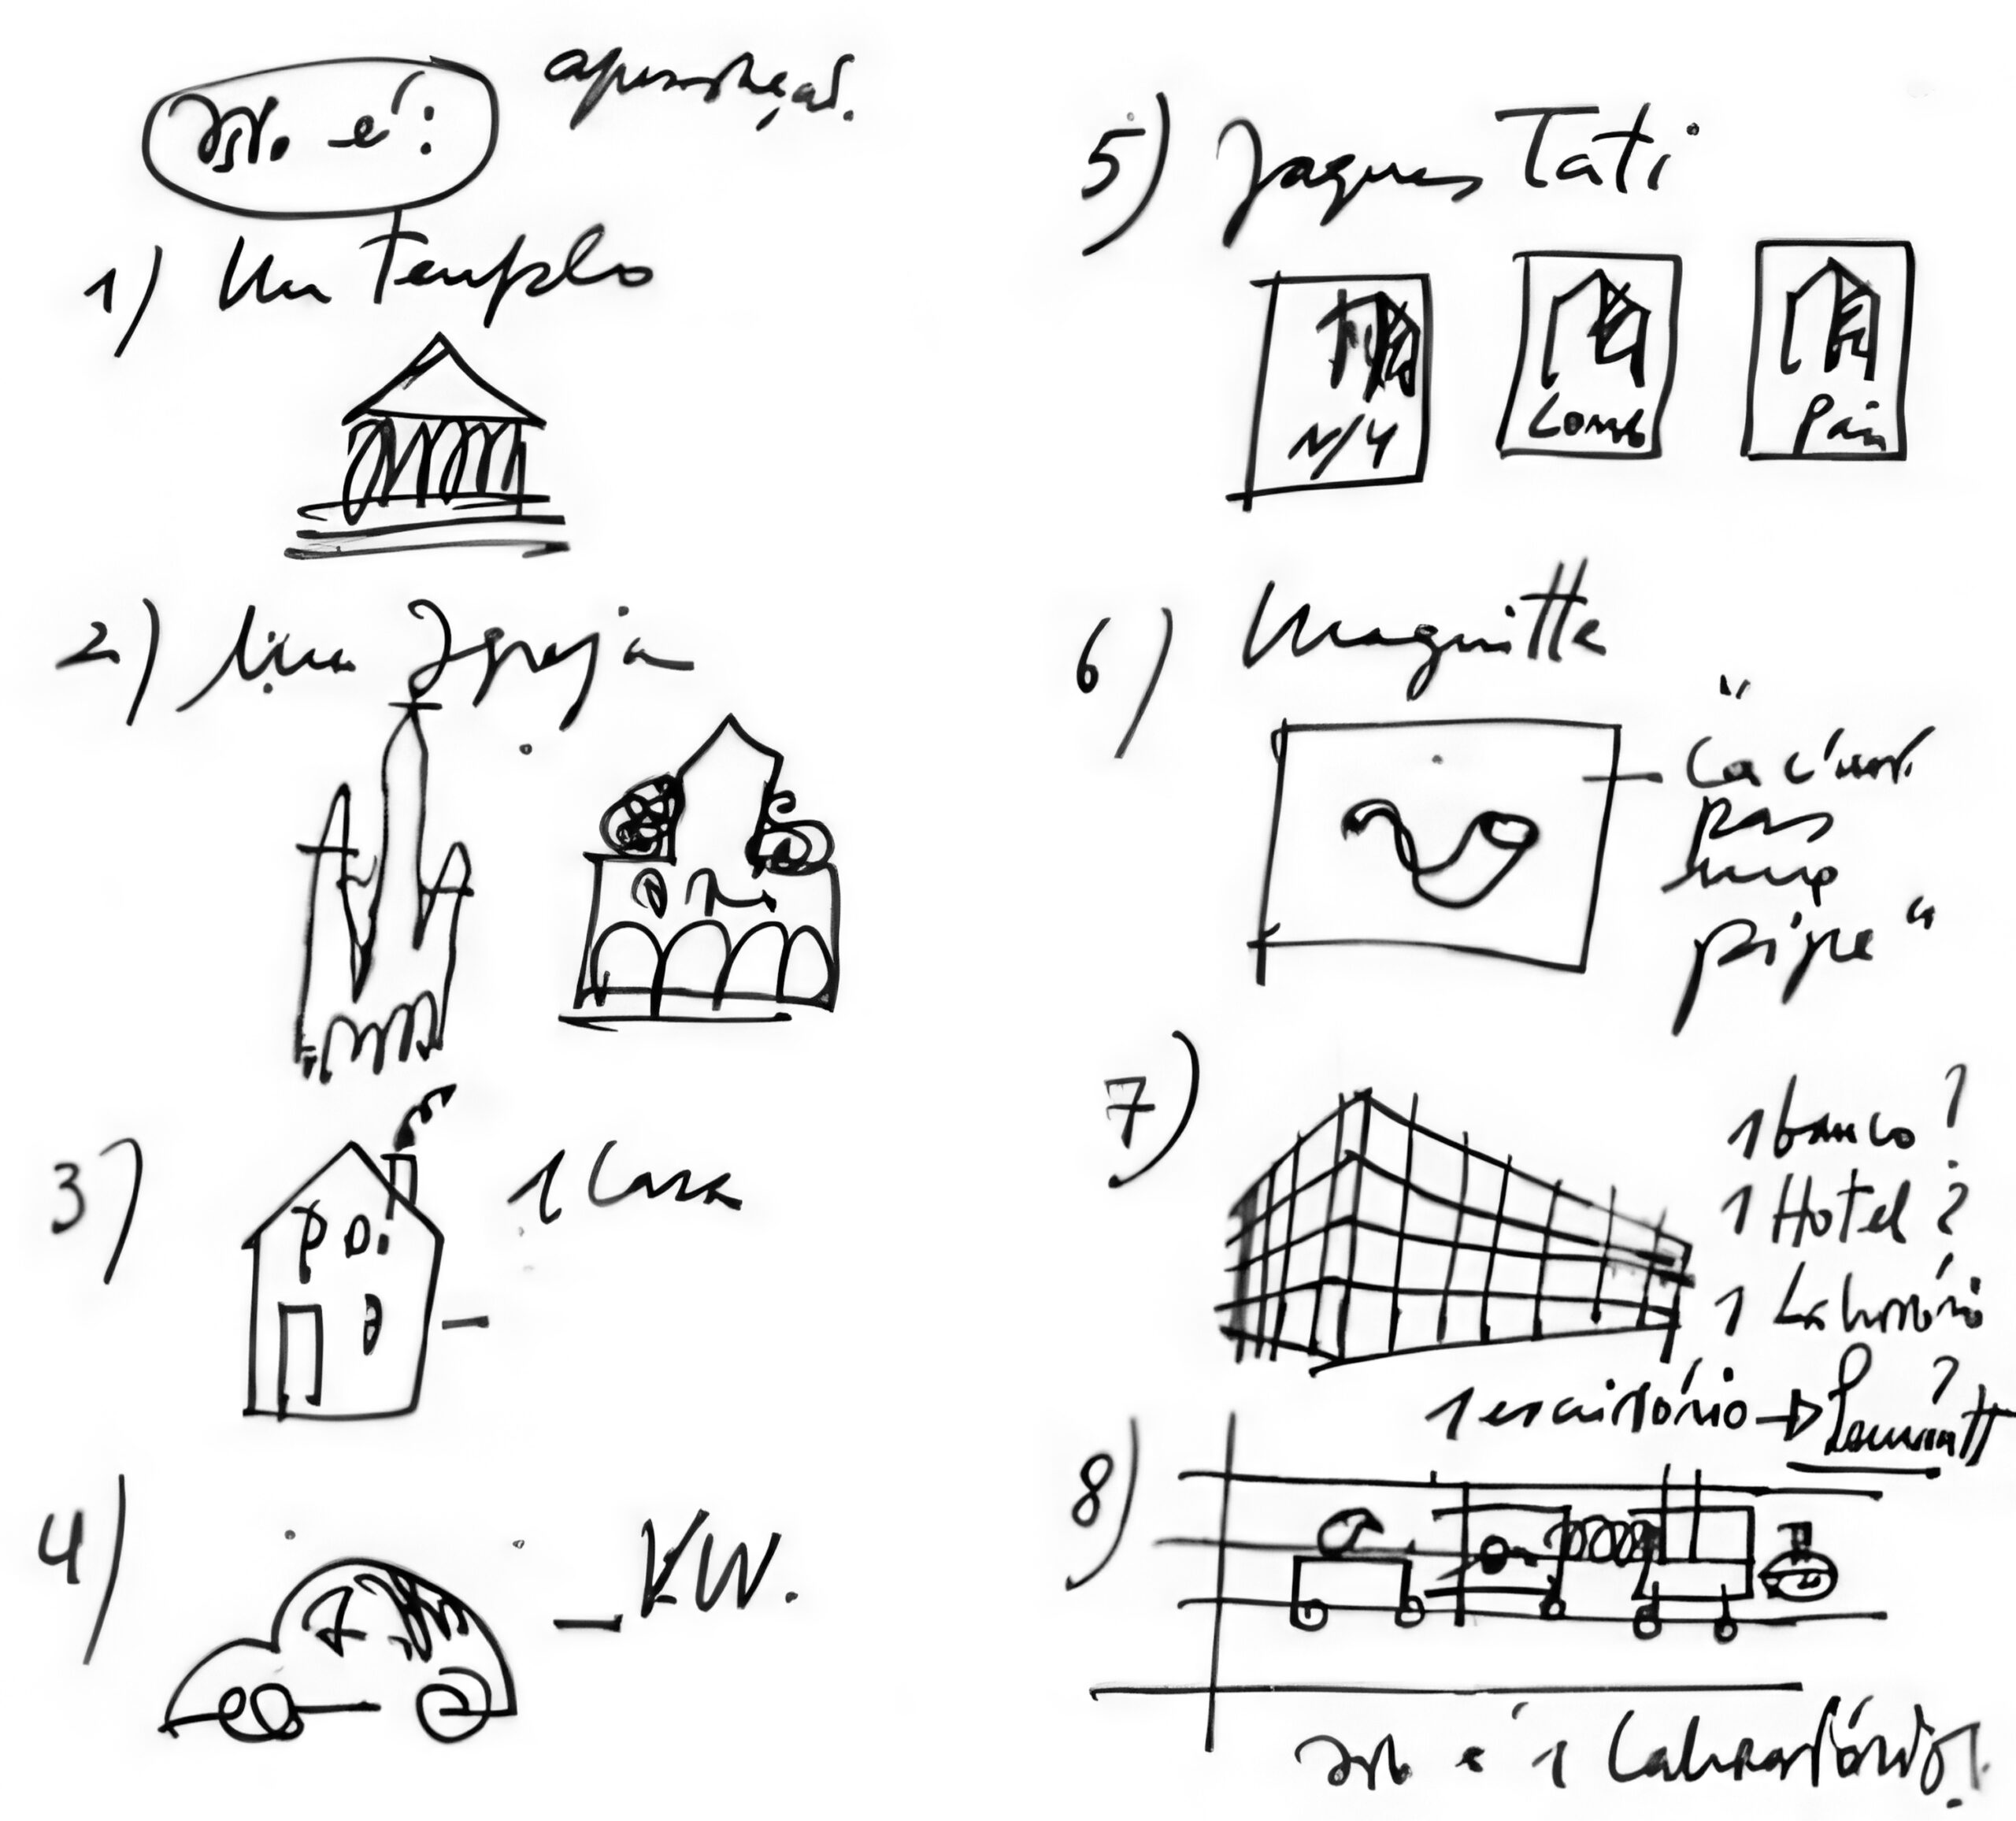 Isto é:
1) Um Templo
2) Uma Igreja
3) 1 Casa
4) VW.
5) Jaques Tati
N/Y
Lond
Paris
6) Magritte
"
pas
une
pipe"
7)
1 banco?
1 Hotel?
1 Laboratório
?
1 escritório →
8)
Isto é 1 Laboratório!